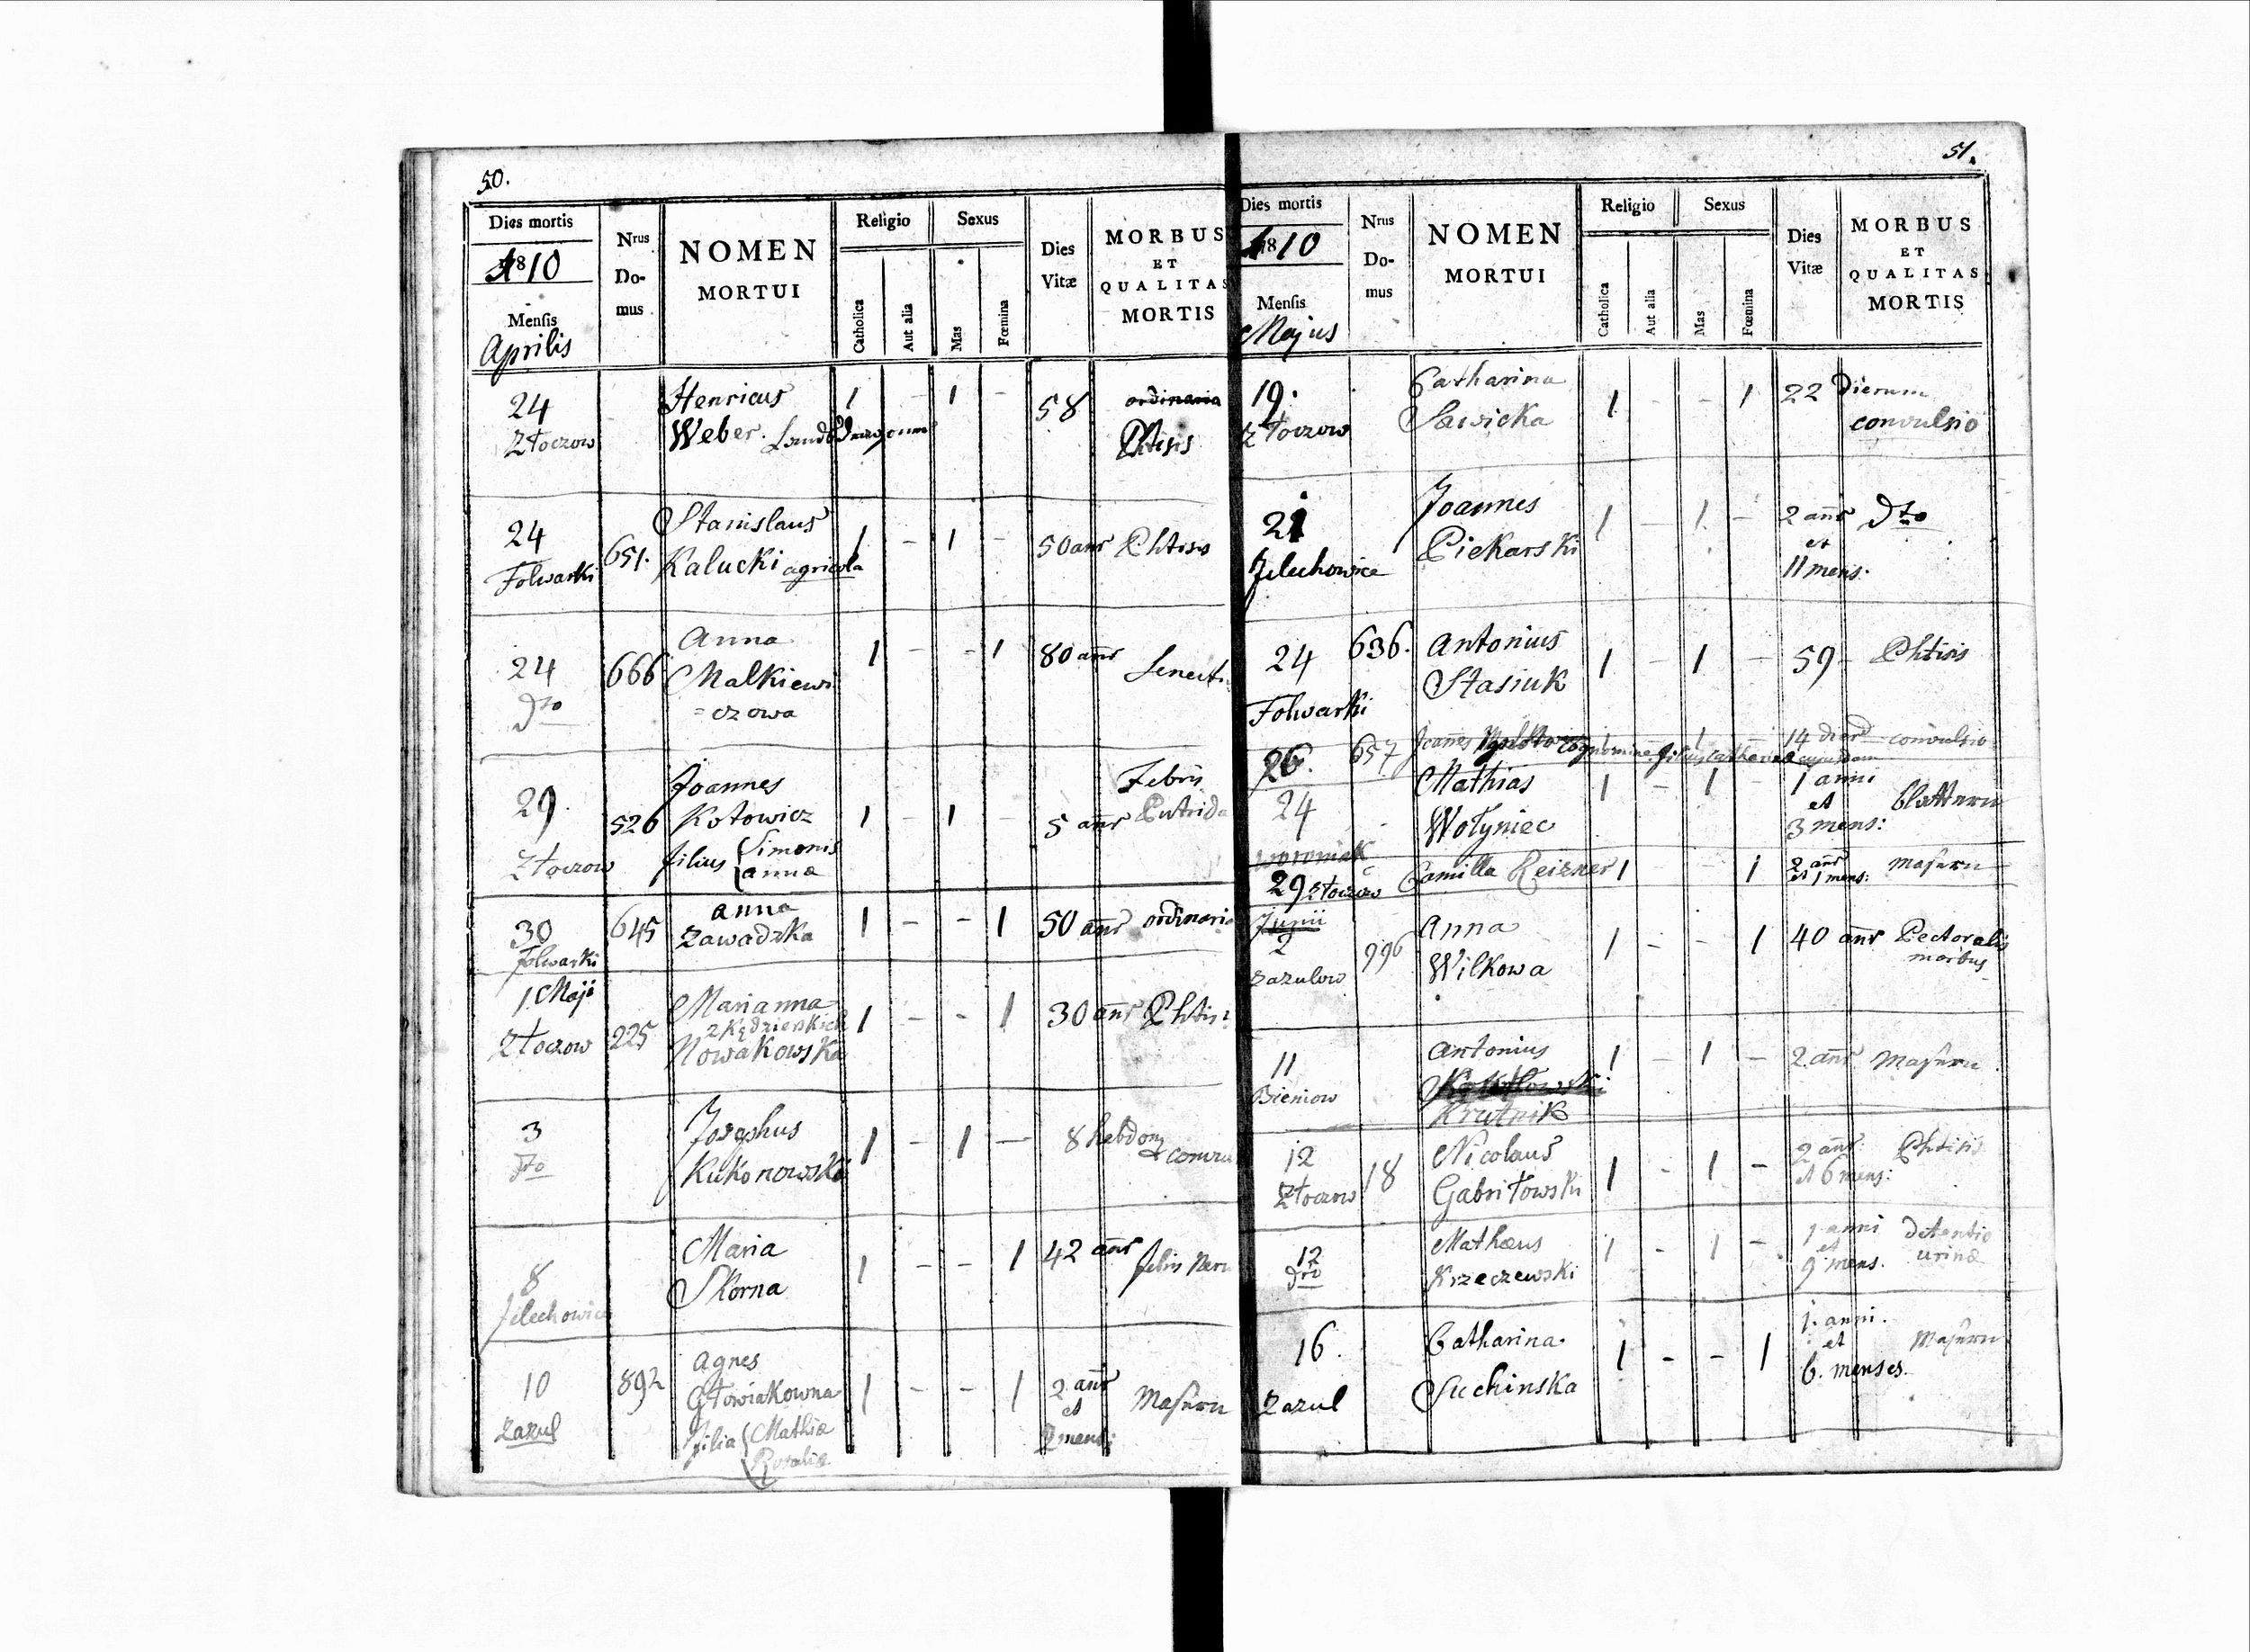 50.
Dies mortis
1810
Mensis
Aprilis
Nrus
Do-
mus
NOMEN
MORTUI
Religio
Catholica
Aut alia
Sexus
Mas
Fœmina
Dies
Vitæ
MORBUS
ET
QUALITAS
MORTIS
24
Złoczow
Henricus
Weber.
1 - 1 -
58
ordinaria
Phtisis
24
Folwarki
651.
Stanislaus
Kalucki agricola
1 - 1 -
50 anr
Phtisis
24
dto
666
Anna
Malkiewi
=czowa
1 - - 1
80 anr
29.
Złoczow
526
Joannes
Kotowicz
filius Simonis
annæ
1 - 1 -
5 anr
Febris
Putrida
30
Folwarki
645
anna
Zawadzka
1 - - 1
50 anr
ordinaria
1. Maji
Złoczow
225
Marianna
z Kędzierskich
Nowakowska
1 - - 1
30 anr
Phtisi
3
dto
Josephus
Kukonowski
1 - 1 -
8 hebdom
convu
8
Jelechowice
Maria
Skorna
1 - - 1
42 anr
febris Nerv
10
Zazul
892
Agnes
Głowiakowna
filia Mathiæ
Rosaliæ
1 - - 1
2 anr
et
mens:
Masern
51.
Dies mortis
1810
Mensis
Majus
Nrus
Do-
mus
NOMEN
MORTUI
Religio
Catholica
Aut alia
Sexus
Mas
Fœmina
Dies
Vitæ
MORBUS
ET
QUALITAS
MORTIS
19.
Złoczow
Catharina
Sawicka
1 - - 1
22 dierum
convulsio
21
Jelechowice
Joannes
Piekarski
1 - 1 -
2 anr
et
11 mens:
dto
24
Folwarki
636.
Antonius
Stasiuk
1 - 1 -
59
Phtisis
26.
657
Joannes
cognomine filius Catharinæ
14 dier
convulsio
24
Woroniak
Mathias
Wołyniec
1 - 1 -
1 anni
et
3 mens:
blattern
29 Złoczow
Camilla Reizner
1 1
2 anr
et 1 mens:
Masern
Junii
2
Zazulow
996
Anna
Wilkowa
1 - - 1
40 anr
Pectoralis
morbus
11
Bieniow
Antonius
Krutnik
1 - 1 -
2 anr
Masern
12
Złoczow
18
Nicolaus
Gabriłowski
1 - 1 -
2 anr
et 6 mens:
Phtisis
12
dto
Mathæus
Krzeczewski
1 - 1 -
1 anni
et
9 mens.
detentio
urinæ
16.
Zazul
Catharina
Suchinska
1 - - 1
1. anni.
et
6. menses.
Masern